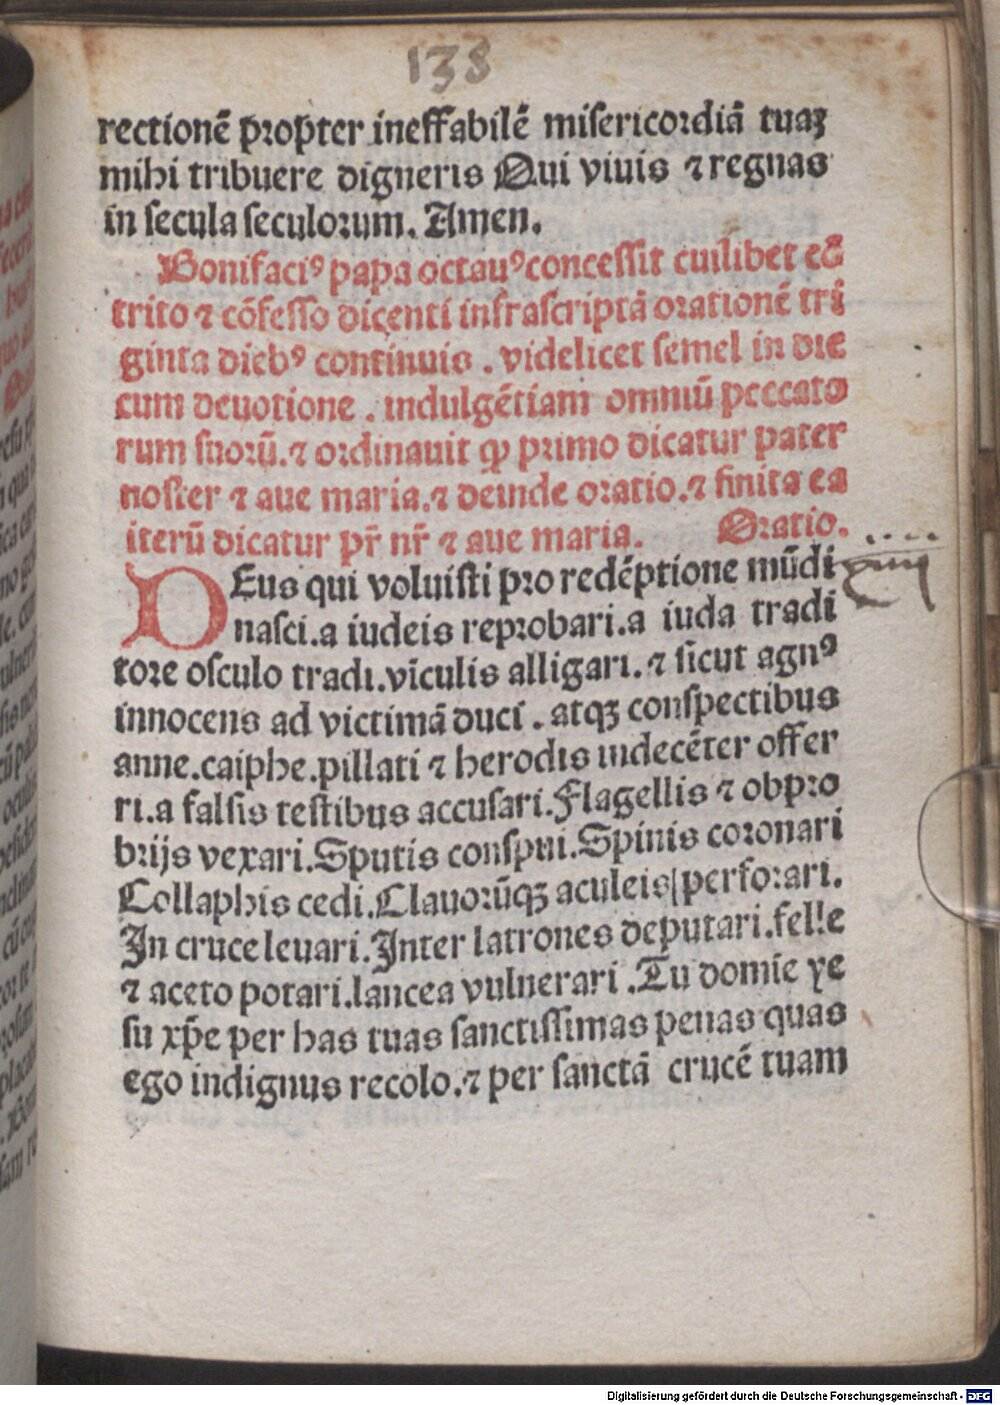 138
rectionē ꝓpter ineffabilē miſericordiā tuaꝫ
mihi tribuere digneris Qui viuis ⁊ regnas
in ſecula ſeculorum. Amen.
Bonifaciꝰ papa octauꝰ conceſſit cuilibet cō
trito ⁊ cōfeſſo dicenti infraſcriptā orationē tri
ginta diebꝰ continuis . videlicet ſemel in die
cum deuotione . indulgētiam omniū peccato
rum ſuorū. ⁊ ordinauit ꝙ primo dicatur pater
noſter ⁊ aue maria. ⁊ deinde oratio. ⁊ finita ea
iterū dicatur pr̄ nr̄ ⁊ aue maria. Oratio.
DEus qui voluiſti pro redēptione mūdi
naſci. a iudeis reprobari. a iuda tradi
tore oſculo tradi. vīculis alligari. ⁊ ſicut agnꝰ
innocens ad victimā duci . atqꝫ conſpectibus
anne. caiphe. pillati ⁊ herodis indecēter offer
ri. a falſis teſtibus accuſari. Flagellis ⁊ obpro
brijs vexari. Sputis conſpui. Spinis coronari
Collaphis cedi. Clauorūqꝫ aculeis perforari.
In cruce leuari. Inter latrones deputari. felle
⁊ aceto potari. lancea vulnerari . Tu domīe ye
ſu xp̄e per has tuas ſanctiſſimas penas quas
ego indignus recolo. ⁊ per ſanctā crucē tuam
Digitalisierung gefördert durch die Deutsche Forschungsgemeinschaft - DFG